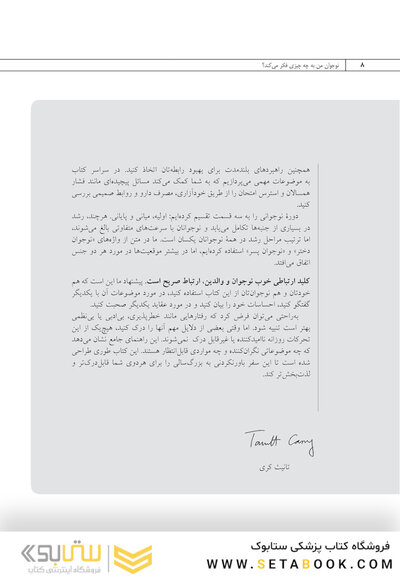 ۸ | نوجوان من به چه چیزی فکر می‌کند؟
همچنین راهبردهای بلندمدت برای بهبود رابطه‌تان اتخاذ کنید. در سراسر کتاب
به موضوعات مهمی می‌پردازیم که به شما کمک می‌کند مسائل پیچیده‌ای مانند فشار
همسالان و استرس امتحان را از طریق خودآزاری، مصرف دارو و روابط صمیمی بررسی
کنید.
دورۀ نوجوانی را به سه قسمت تقسیم کرده‌ایم: اولیه، میانی و پایانی. هرچند، رشد
در بسیاری از جنبه‌ها تکامل می‌یابد و نوجوانان با سرعت‌های متفاوتی بالغ می‌شوند،
اما ترتیب مراحل رشد در همۀ نوجوانان یکسان است. ما در متن از واژه‌های «نوجوان
دختر» و «نوجوان پسر» استفاده کرده‌ایم، اما در بیشتر موقعیت‌ها در مورد هر دو جنس
اتفاق می‌افتد.
کلید ارتباطی خوب نوجوان و والدین، ارتباط صریح است. پیشنهاد ما این است که هم
خودتان و هم نوجوان‌تان از این کتاب استفاده کنید، در مورد موضوعات آن با یکدیگر
گفتگو کنید، احساسات خود را بیان کنید و در مورد عقاید یکدیگر صحبت کنید.
به‌راحتی می‌توان فرض کرد که رفتارهایی مانند خطرپذیری، بی‌ادبی یا بی‌نظمی
بهتر است تنبیه شود. اما وقتی بعضی از دلایل مهم آنها را درک کنید، هیچ‌یک از این
تحرکات روزانه ناامیدکننده یا غیرقابل درک نمی‌شوند. این راهنمای جامع نشان می‌دهد
که چه موضوعاتی نگران‌کننده و چه مواردی قابل‌انتظار هستند. این کتاب طوری طراحی
شده است تا این سفر باورنکردنی به بزرگ‌سالی را برای هردوی شما قابل‌درک‌تر و
لذت‌بخش‌تر کند.
Tanith Carey
تانیث کری
فروشگاه کتاب پزشکی ستابوک
WWW.SETABOOK.COM
ستابوک
فروشگاه اینترنتی کتاب